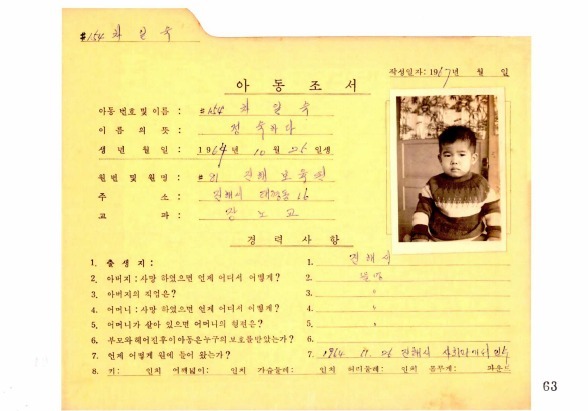 #154 차 일 숙
작성일자: 1967년 월 일
아 동 조 서
아동 번호 및 이름 : #154 차 일 숙
이 름 의 뜻 : 정숙하다
생 년 월 일 : 1964년 10월 26일생
원번 및 원명 : #81 진해 보육원
주 소 : 진해시 태평동 16
교 파 : 장 노 교
경 력 사 항
1. 출 생 지 : 1. 진해시
2. 아버지 : 사망 하였으면 언제 어디서 어떻게? 2. 불명
3. 아버지의 직업은? 3. 〃
4. 어머니 : 사망 하였으면 언제 어디서 어떻게? 4. 〃
5. 어머니가 살아 있으면 어머니의 형편은? 5. 〃
6. 부모와 헤어진후이아동은누구의 보호를받았는가? 6.
7. 언제 어떻게 원에 들어 왔는가? 7. 1964. 11. 26 진해시 사회과에서 인수
8. 키: 인치 어깨넓이: 인치 가슴둘레: 인치 허리둘레: 인치 몸무게: 파운드
63